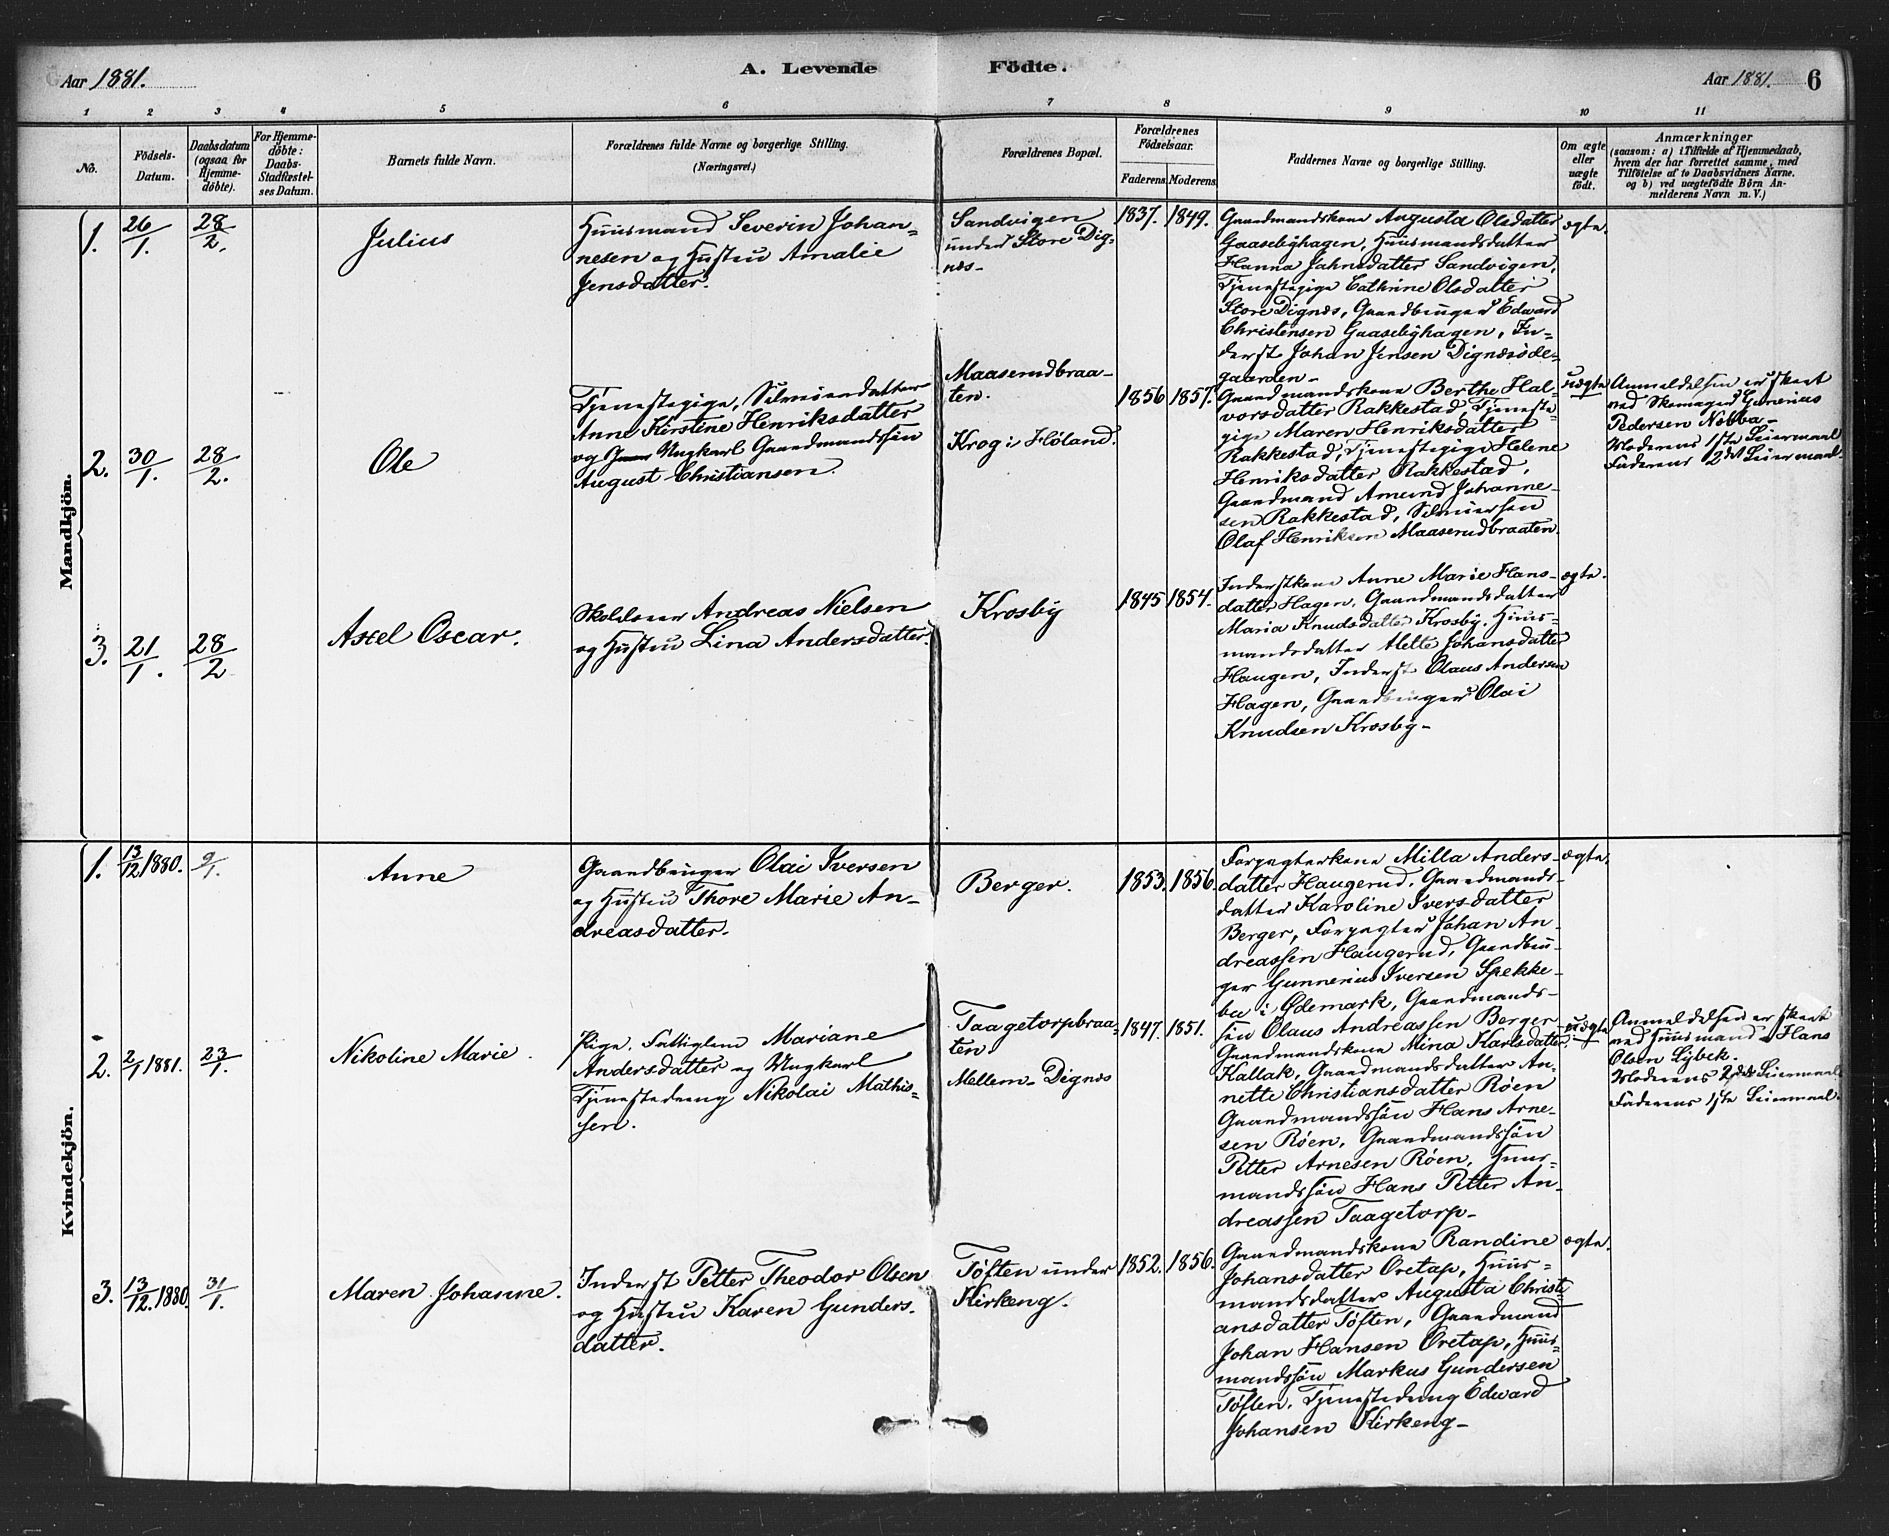 Aar 1881.
A. Levende Födte.
Aar 1881.
6
1 2 3 4 5 6 7 8 9 10 11
No.
Födsels-
Datum.
Daabsdatum
(ogsaa for
Hjemme-
döbte).
For Hjemme-
döbte:
Daabs-
Stadfæstel-
ses Datum.
Barnets fulde Navn.
Forældrenes fulde Navne og borgerlige Stilling.
(Næringsvei.)
Forældrenes Bopæl.
Forældrenes
Födselsaar.
Faderens. Moderens.
Faddernes Navne og borgerlige Stilling.
Om ægte
eller
uægte
födt.
Anmærkninger
(saasom: a) i Tilfælde af Hjemmedaab,
hvem der har forrettet samme, med
Tilföielse af to Daabsvidners Navne.
og b) ved uægtefödte Börn An-
melderens Navn m. V.)
Mandkjön.
1.
26/1.
28/2.
Julius
Huusmand Severin Johan-
nesen og Hustru Amalie
Jensdatter.
Sandvigen
under Store Dig-
næs-
1837. 1849.
Gaardmandskone Augusta Olsdatter
Gaasebyhagen, Huusmandsdatter
Hanna Jahnsdatter Sandvigen,
Tjenestepige Cathrine Olsdatter
Store Dignæs, Gaardbruger Edvard
Christensen Gaasebyhagen, In-
derst Johan Jensen Dignæsöde-
gaarden-
ægte.
2.
30/1.
28/2.
Ole
Tjenestepige, Selveierdatter
Anne Kirstine Henriksdatter
og Ungkarl Gaardmandssön
August Christiansen.
Maaserudbraa-
ten.
Krog i Høland.
1856 1857.
Gaardmandskone Berthe Hal-
vorsdatter Rakkestad, Tjeneste-
pige Maren Henriksdatter
Rakkestad, Tjenestepige Helene
Henriksdatter Rakkestad,
Gaardmand Amund Johanne-
sen Rakkestad, Selveiersön
Olaf Henriksen Maaserudbraaten.
uægte
Anmeldelsen er skeet
ved Skomager Gunerius
Pedersen Nobba-
Moderens 1ste Leiermaal
Faderens 2det Leiermaal.
3.
21/1.
28/2
Axel Oscar.
Skolelærer Andreas Nielsen
og Hustru Lina Andersdatter.
Krosby
1845 1854.
Inderstkone Anne Marie Hans-
datter Hagen, Gaardmandsdatter
Maria Knudsdatter Krosby, Huus-
mandsdatter Mette Johansdatter
Haugen, Inderst Olaus Andersen
Hagen, Gaardbruger Olai
Knudsen Krosby-
ægte.
Kvindekjön.
1.
13/12 1880.
9/1.
Anne
Gaardbruger Olai Iversen
og Hustru Thore Marie An-
dreasdatter.
Berger.
1853. 1856.
Forpagterkone Milla Anders-
datter Haugerud, Gaardmands-
datter Karoline Iversdatter
Berger, Forpagter Johan An-
dreassen Haugerud, Gaardbru-
ger Gunnerius Iversen Spekke-
bu i Ødemark, Gaardmands-
sön Olaus Andreassen Berger
ægte.
2.
2/1 1881.
23/1.
Nikoline Marie.
Pige, Fattiglem Mariane
Andersdatter og Ungkarl
Tjenestedreng Nikolai Mathis-
sen.
Taagetorpbraa-
ten.
Mellem-Dignæs
1847. 1851.
Gaardmandskone Mina Karlsdatter
Kallak, Gaardmandsdatter An-
nette Christiansdatter Röen
Gaardmandssön Hans Arne-
sen Röen, Gaardmandssön
Petter Arnesen Röen, Huus-
mandssön Hans Petter An-
dreassen Taagetorp-
uægte
Anmeldelsen er skeet
ved Huusmand Hans
Olsen Lybek.
Moderens 2det Leiermaal
Faderens 1ste Leiermaal.
3.
13/12. 1880.
31/1.
Maren Johanne.
Inderst Petter Theodor Olsen
og Hustru Karen Gunders-
datter.
Töften under
Kirkeng.
1852. 1856.
Gaardmandskone Randine
Johansdatter Oretap, Huus-
mandsdatter Augusta Christi-
ansdatter Töften, Gaardmand
Johan Hansen Oretap, Huus-
mandssön Markus Gundersen
Töften, Tjenestedreng Edvard
Johansen Kirkeng-
ægte.